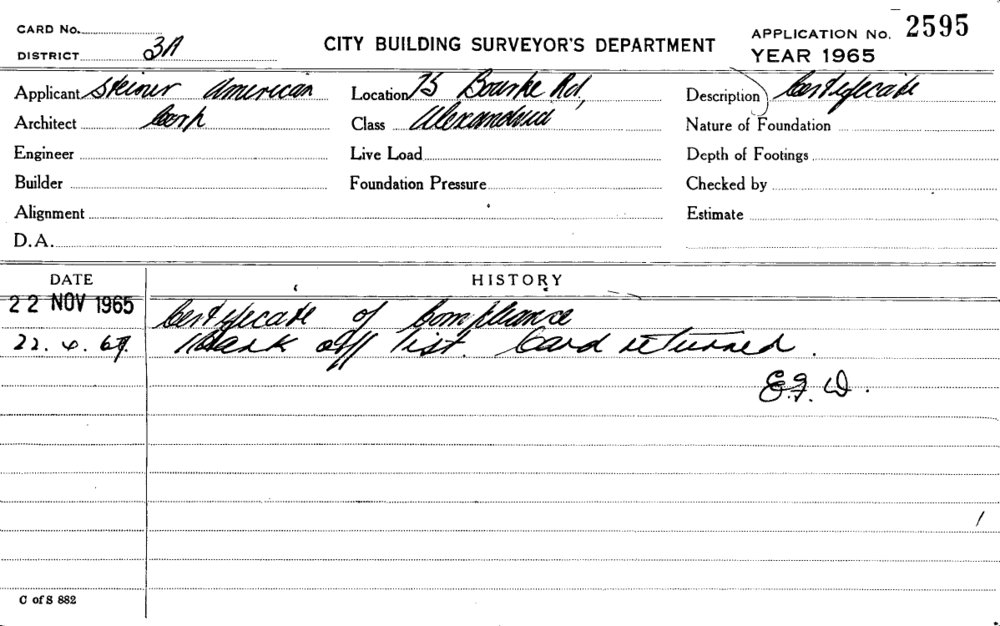 CARD No.
DISTRICT 3A
CITY BUILDING SURVEYOR'S DEPARTMENT
APPLICATION No. 2595
YEAR 1965
Applicant Steiner American
Location 75 Bourke Rd,
Description Certificate
Architect Corp
Class Alexandria
Nature of Foundation
Engineer
Live Load
Depth of Footings
Builder
Foundation Pressure
Checked by
Alignment
Estimate
D.A.
DATE
HISTORY
22 NOV 1965 Certificate of Compliance
22. 4. 69. Mark off list. Card returned.
E.F.D.
C of S 882